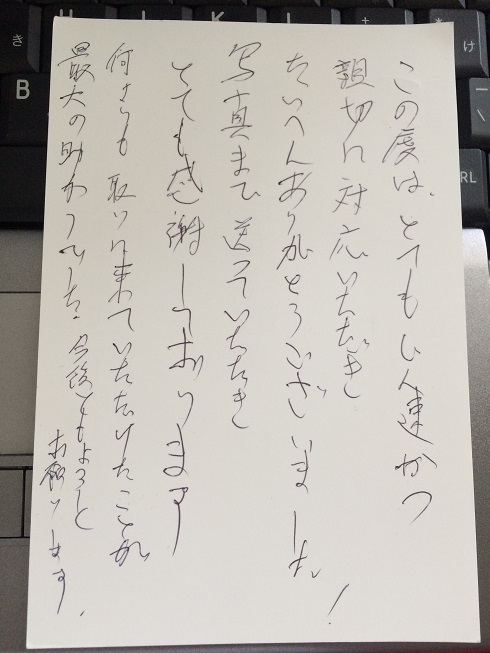 この度は、とてもじん速かつ
親切に対応いただき
たいへんありがとうございました!
写真まで送っていただき
とても感謝しております
何よりも取りに来ていただけたことが
最大の助かりでした。今後ともよろしく
お願いします。
き
B
L
+
*
け
RL